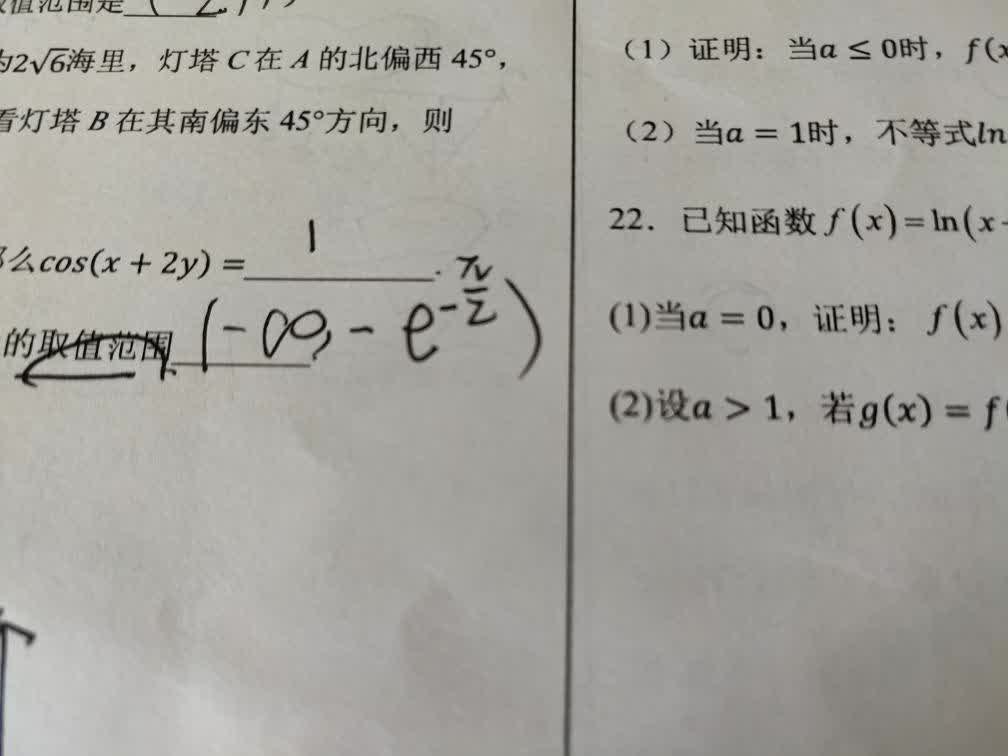 取值范围是
为2√6海里，灯塔 C 在 A 的北偏西 45°，
看灯塔 B 在其南偏东 45°方向，则
那么cos(x + 2y) = 1 .
的取值范围 (-∞, -e^{-π/2})
（1）证明：当a ≤ 0时，f(x
（2）当a = 1时，不等式ln
22．已知函数 f(x)=ln(x-
(1)当a = 0，证明：f(x)
(2)设a > 1，若g(x) = f(